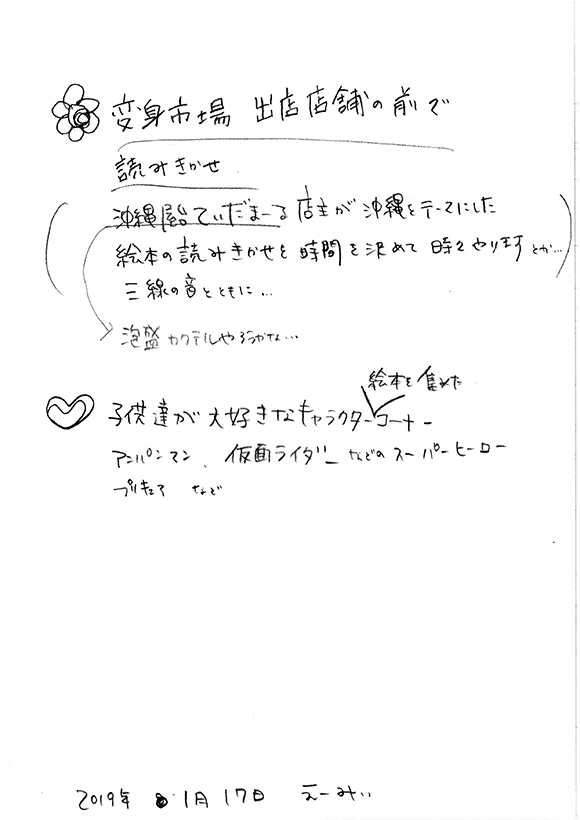 変身市場 出店店舗の前で
読みきかせ
沖縄屋台てぃだまーる店主が沖縄をテーマにした
絵本の読みきかせを時間を決めて時々やりますとか…
三線の音とともに…
泡盛カクテルやろうかな…
絵本を集めた
子供達が大好きなキャラクターコーナー
アンパンマン、仮面ライダーなどのスーパーヒーロー
プリキュア など
2019年 1月17日 えーみぃ